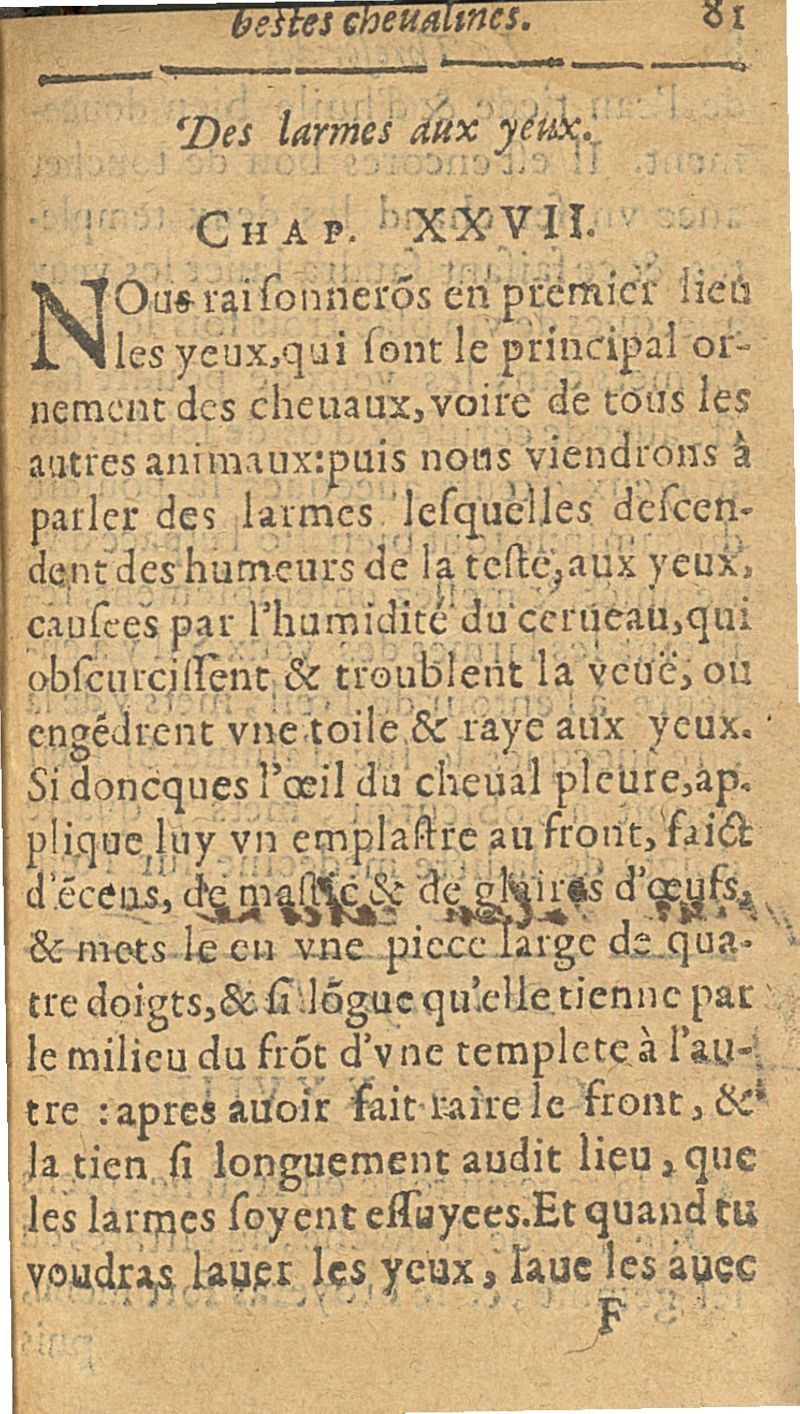 bestes cheualines. 81
Des larmes aux yeux.
CHAP. XXVII.
NOus raiſonnerõs en premier lieu
les yeux, qui ſont le principal or-
nement des cheuaux, voire de tous les
autres animaux: puis nous viendrons à
parler des larmes leſquelles deſcen-
dent des humeurs de la teſte, aux yeux,
cauſees par l'humidité du cerueau, qui
obſcurciſſent & troublent la veuë, ou
engẽdrent vne toile & raye aux yeux.
Si doncques l'œil du cheual pleure, ap-
plique luy vn emplaſtre au front, faict
d'ẽcens, de maſtic & de glaires d'œufs,
& mets le en vne piece large de qua-
tre doigts, & ſi lõgue qu'elle tienne par
le milieu du frõt d'vne templete à l'au-
tre : apres auoir fait raire le front, &
la tien ſi longuement audit lieu, que
les larmes ſoyent eſſuyees. Et quand tu
voudras lauer les yeux, laue les auec
F